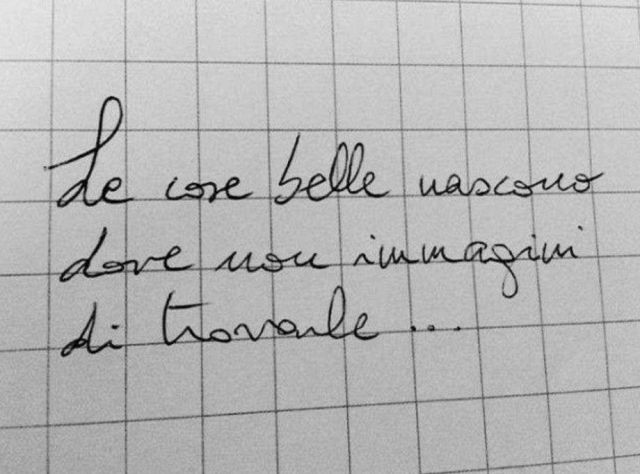 Le cose belle nascono
dove non immagini
di trovarle...